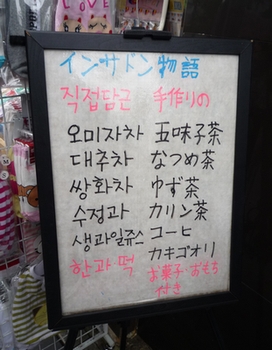 インサドン物語
직접담근 手作りの
오미자차 五味子茶
대추차 なつめ茶
쌍화차 ゆず茶
수정과 カリン茶
생과일쥬스 コーヒ
한과 떡 カキゴオリ
お菓子・おもち
付き